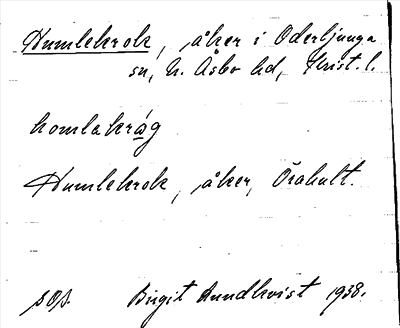 Humlekrok, åker i Oderljunga
sn, N. Åsbo hd, Krist. l.
homlakråg
Humlekrok, åker, Örahult.
SOA. Birgit Rundkvist 1938.